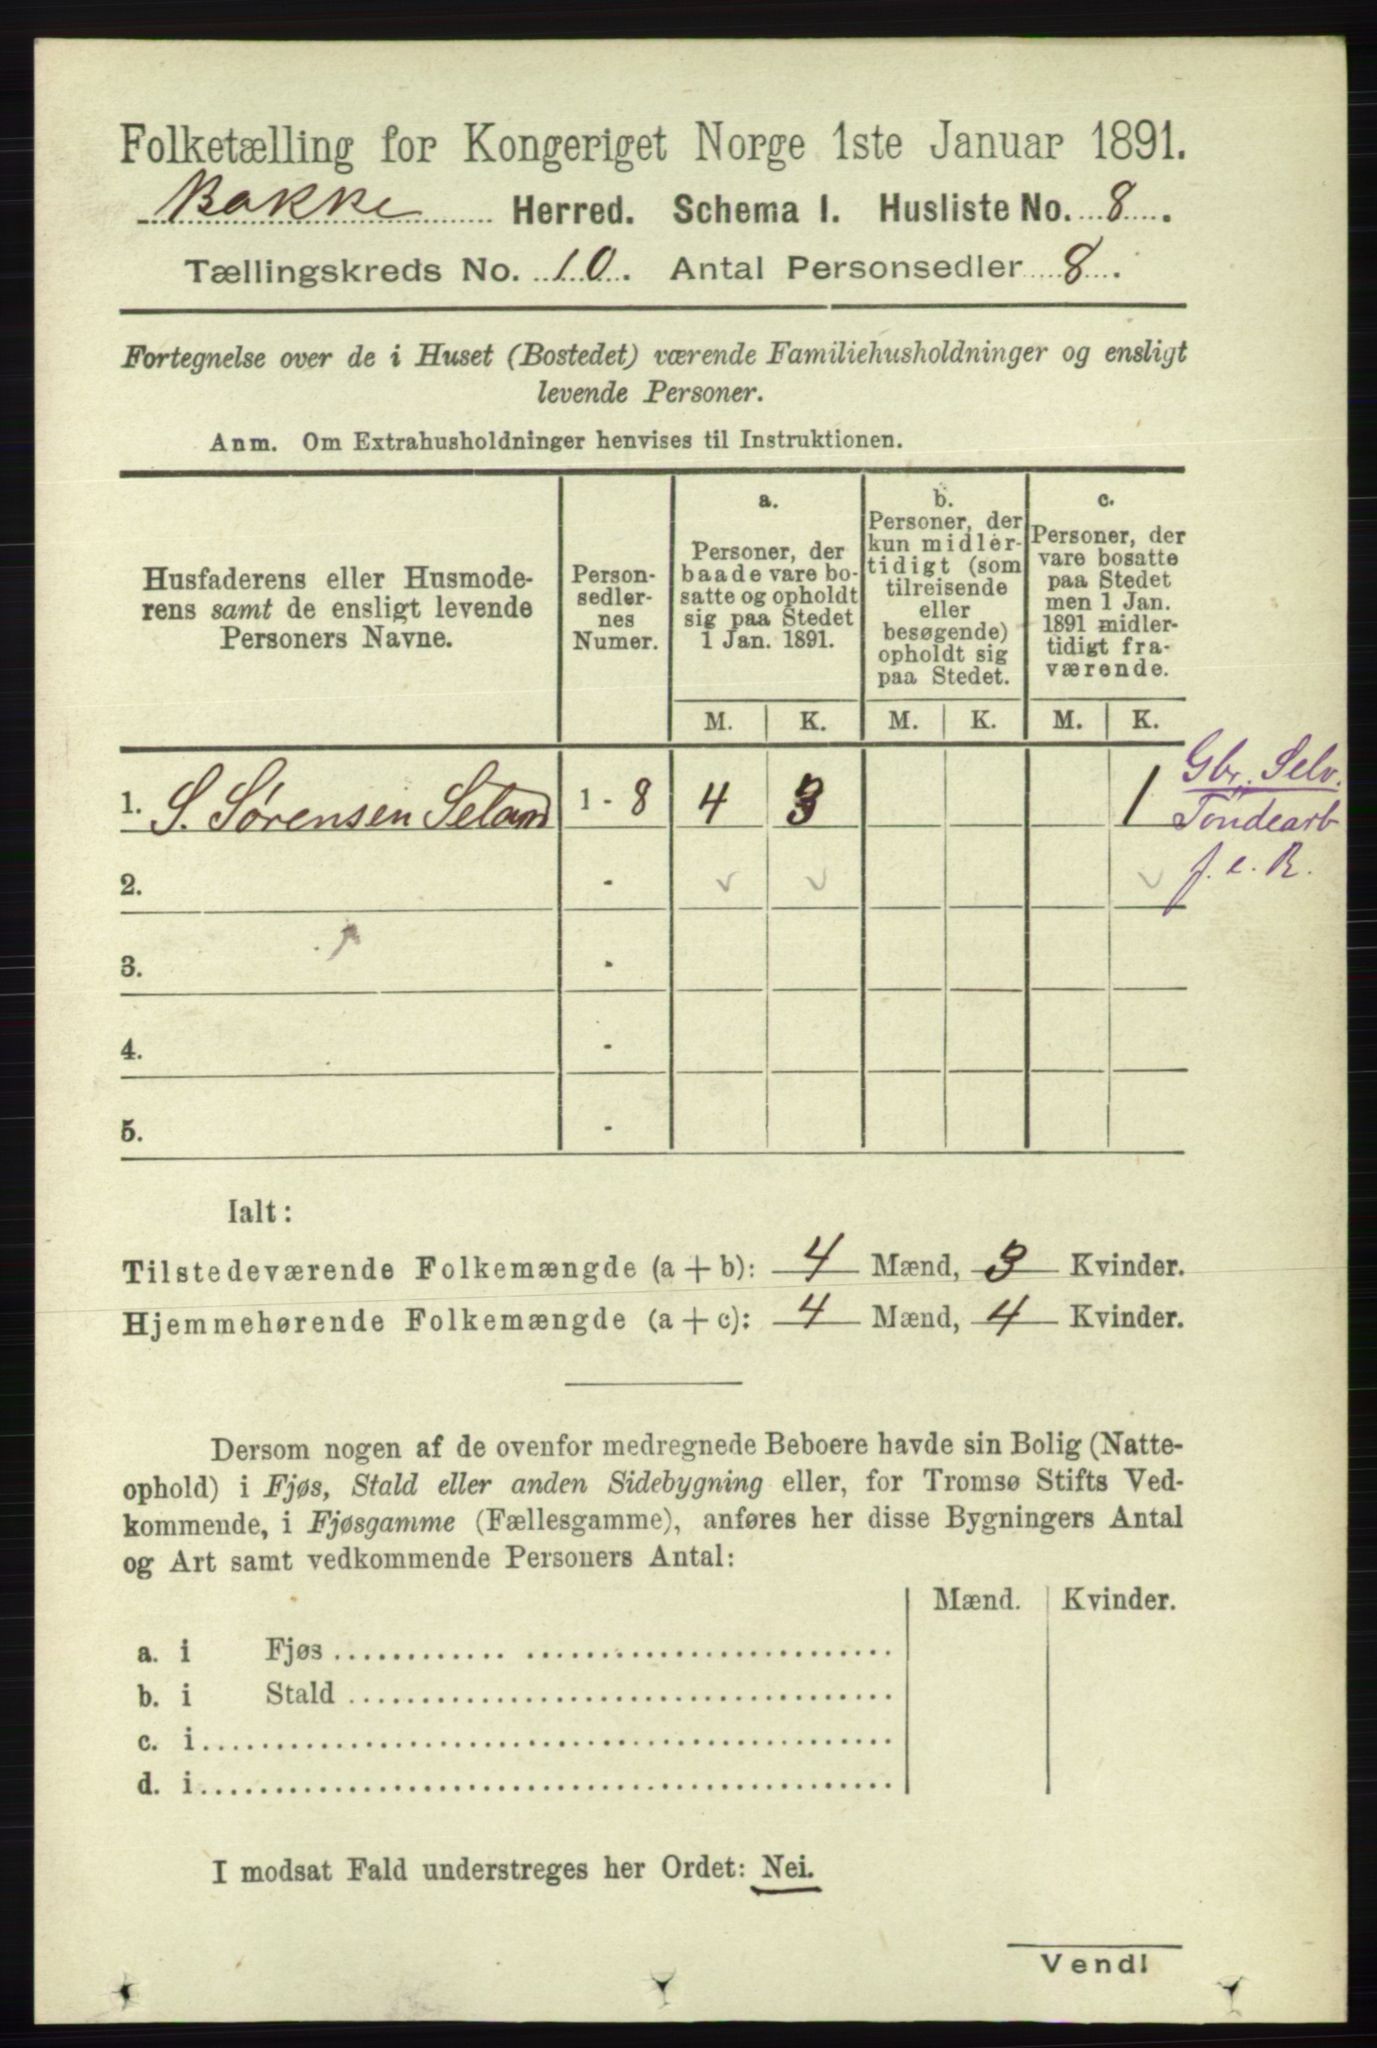 Folketælling for Kongeriget Norge 1ste Januar 1891.
Bakke Herred. Schema I. Husliste No. 8.
Tællingskreds No. 10. Antal Personsedler 8.
Fortegnelse over de i Huset (Bostedet) værende Familiehusholdninger og ensligt
levende Personer.
Anm. Om Extrahusholdninger henvises til Instruktionen.
Husfaderens eller Husmode-
rens samt de ensligt levende
Personers Navne.
Person-
sedler-
nes
Numer.
a.
Personer, der
baade vare bo-
satte og opholdt
sig paa Stedet
1 Jan. 1891.
b.
Personer, der
kun midler-
tidigt (som
tilreisende
eller
besøgende)
opholdt sig
paa Stedet.
c.
Personer, der
vare bosatte
paa Stedet
men 1 Jan.
1891 midler-
tidigt fra-
værende.
M. K. M. K. M. K.
1. S. Sørensen Seland 1 - 8 4 3 1
Gbr. Selv.
Töndearb
f. e. R.
2. -
3. -
4. -
5. -
Ialt:
Tilstedeværende Folkemængde (a + b): 4 Mænd, 3 Kvinder.
Hjemmehørende Folkemængde (a + c): 4 Mænd, 4 Kvinder.
Dersom nogen af de ovenfor medregnede Beboere havde sin Bolig (Natte-
ophold) i Fjøs, Stald eller anden Sidebygning eller, for Tromsø Stifts Ved-
kommende, i Fjøsgamme (Fællesgamme), anføres her disse Bygningers Antal
og Art samt vedkommende Personers Antal:
Mænd. Kvinder.
a. i Fjøs
b. i Stald
c. i
d. i
I modsat Fald understreges her Ordet: Nei.
Vend!